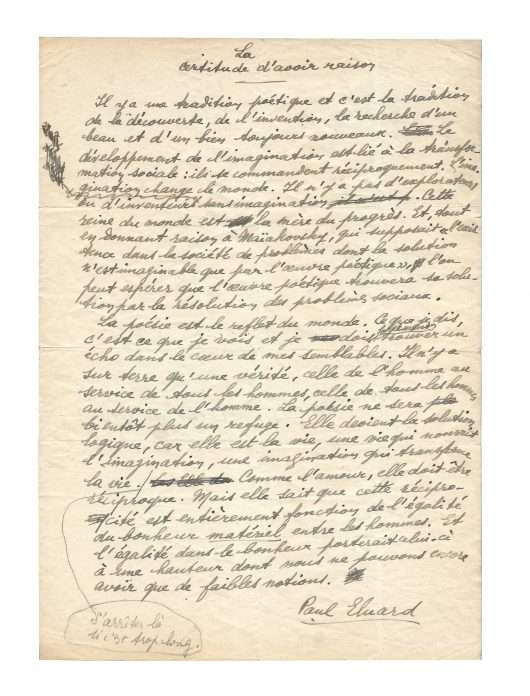 La
certitude d'avoir raison
Il y a une tradition poétique et c'est la tradition
de la découverte, de l'invention, la recherche d'un
beau et d'un bien toujours nouveaux. Le
développement de l'imagination est lié à la transfor-
mation sociale : ils se commandent réciproquement. L'ima-
gination change le monde. Il n'y a pas d'explorateurs
ou d'inventeurs sans imagination. Cette
reine du monde est la mère du progrès. Et, tout
en donnant raison à Maïakovsky, qui supposait « l'exis
tence dans la société de problèmes dont la solution
n'est imaginable que par l'œuvre poétique », l'on
peut espérer que l'œuvre poétique trouvera sa solu-
tion par la résolution des problèmes sociaux.
La poésie est le reflet du monde. Ce que je dis,
c'est ce que je vois et je dois trouver un
écho dans le cœur de mes semblables. Il n'y a
sur terre qu'une vérité, celle de l'homme au
service de tous les hommes, celle de tous les hommes
au service de l'homme. La poésie ne sera
bientôt plus un refuge. Elle devient la solution
logique, car elle est la vie, une vie qui nourrit
l'imagination, une imagination qui transforme
la vie. Comme l'amour, elle doit être
réciproque. Mais elle sait que cette récipro-
cité est entièrement fonction de l'égalité
du bonheur matériel entre les hommes. Et
l'égalité dans le bonheur porterait celui-ci
à une hauteur dont nous ne pouvons encore
avoir que de faibles notions.
Paul Eluard
S'arrêter là
si c'est trop long.